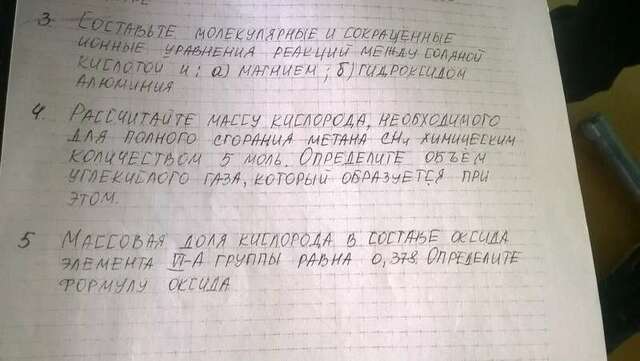 3. Составьте молекулярные и сокращенные
ионные уравнения реакций между соляной
кислотой и: а) магнием; б) гидроксидом
алюминия
4. Рассчитайте массу кислорода, необходимого
для полного сгорания метана CH4 химическим
количеством 5 моль. Определите объём
углекислого газа, который образуется при
этом.
5 Массовая доля кислорода в составе оксида
элемента VI-А группы равна 0,378. Определите
формулу оксида